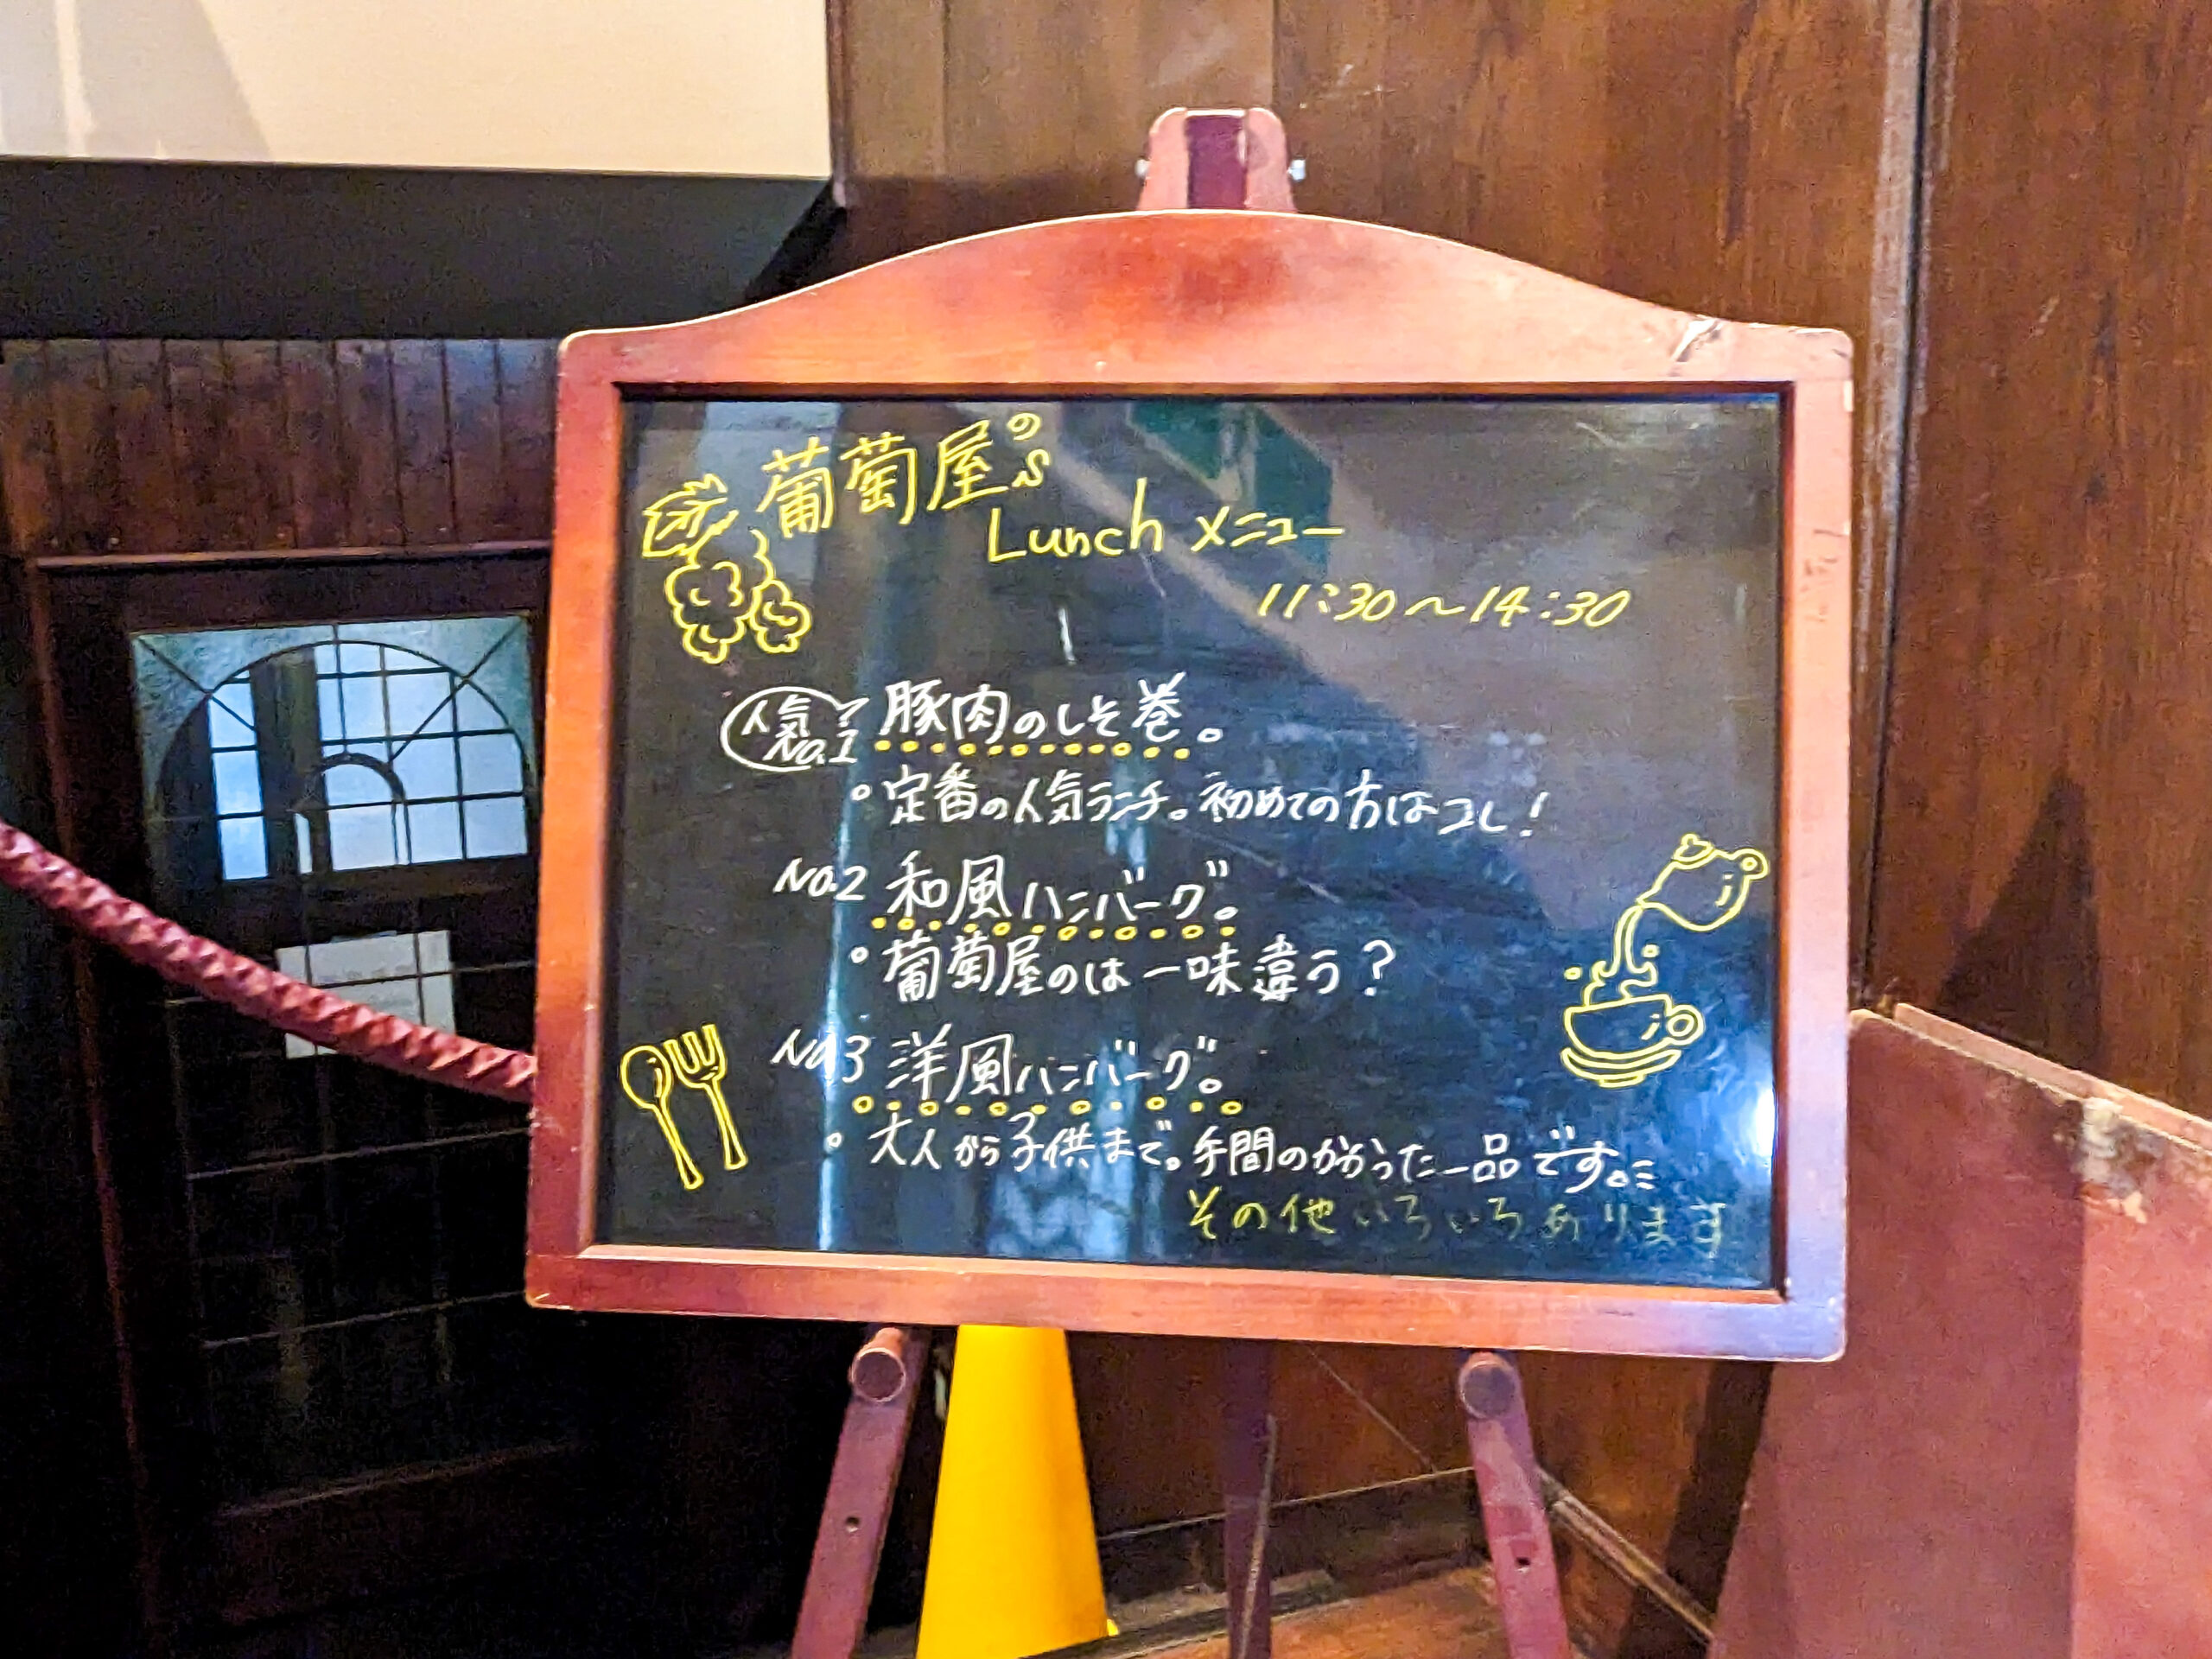 葡萄屋の
Lunch メニュー
11:30～14:30
人気No.1 豚肉のしそ巻。
定番の人気ランチ。初めての方はコレ！
No.2 和風ハンバーグ。
葡萄屋のは一味違う？
No.3 洋風ハンバーグ。
大人から子供まで。手間のかかった一品です。
その他いろいろあります